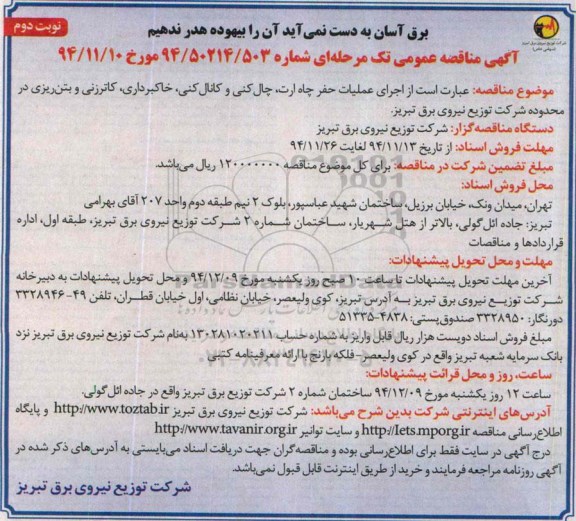 نوبت دوم
برق آسان به دست نمی‌آید آن را بیهوده هدر ندهیم
شرکت توزیع نیروی برق تبریز
(سهامی خاص)
آگهی مناقصه عمومی تک مرحله‌ای شماره ۹۴/۵۰۲۱۴/۵۰۳ مورخ ۹۴/۱۱/۱۰
موضوع مناقصه: عبارت است از اجرای عملیات حفر چاه ارت، چال‌کنی و کانال‌کنی، خاکبرداری، کاترزنی و بتن‌ریزی در
محدوده شرکت توزیع نیروی برق تبریز.
دستگاه مناقصه‌گزار: شرکت توزیع نیروی برق تبریز
مهلت فروش اسناد: از تاریخ ۹۴/۱۱/۱۳ لغایت ۹۴/۱۱/۲۶
مبلغ تضمین شرکت در مناقصه: برای کل موضوع مناقصه ۱۲۰۰۰۰۰۰۰ ریال می‌باشد.
محل فروش اسناد:
تهران، میدان ونک، خیابان برزیل، ساختمان شهید عباسپور، بلوک ۲ نیم طبقه دوم واحد ۲۰۷ آقای بهرامی
تبریز: جاده ائل‌گولی، بالاتر از هتل شهریار، ساختمان شماره ۲ شرکت توزیع نیروی برق تبریز، طبقه اول، اداره
قراردادها و مناقصات
مهلت و محل تحویل پیشنهادات:
آخرین مهلت تحویل پیشنهادات تا ساعت ۱۰ صبح روز یکشنبه مورخ ۹۴/۱۲/۰۹ و محل تحویل پیشنهادات به دبیرخانه
شرکت توزیع نیروی برق تبریز به آدرس تبریز، کوی ولیعصر، خیابان نظامی، اول خیابان قطران، تلفن ۴۹-۳۳۲۸۹۴۶
دورنگار: ۳۳۲۸۹۵۰ صندوق‌پستی: ۴۸۳۸-۵۱۳۳۵
مبلغ فروش اسناد دویست هزار ریال قابل واریز به شماره حساب ۱۳۰۲۸۱۰۲۰۲۱۱ به‌نام شرکت توزیع نیروی برق تبریز نزد
بانک سرمایه شعبه تبریز واقع در کوی ولیعصر-فلکه بارنج با ارائه معرفینامه کتبی
ساعت، روز و محل قرائت پیشنهادات:
ساعت ۱۲ روز یکشنبه مورخ ۹۴/۱۲/۰۹ ساختمان شماره ۲ شرکت توزیع نیروی برق تبریز واقع در جاده ائل‌گولی.
آدرس‌های اینترنتی شرکت بدین شرح می‌باشد: شرکت توزیع نیروی برق تبریز http://www.toztab.ir و پایگاه
اطلاع‌رسانی مناقصه http://iets.mporg.ir و سایت توانیر http://www.tavanir.org.ir
درج آگهی در سایت فقط برای اطلاع‌رسانی بوده و مناقصه‌گران جهت دریافت اسناد می‌بایستی به آدرس‌های ذکر شده در
آگهی روزنامه مراجعه فرمایند و خرید از طریق اینترنت قابل قبول نمی‌باشد.
شرکت توزیع نیروی برق تبریز